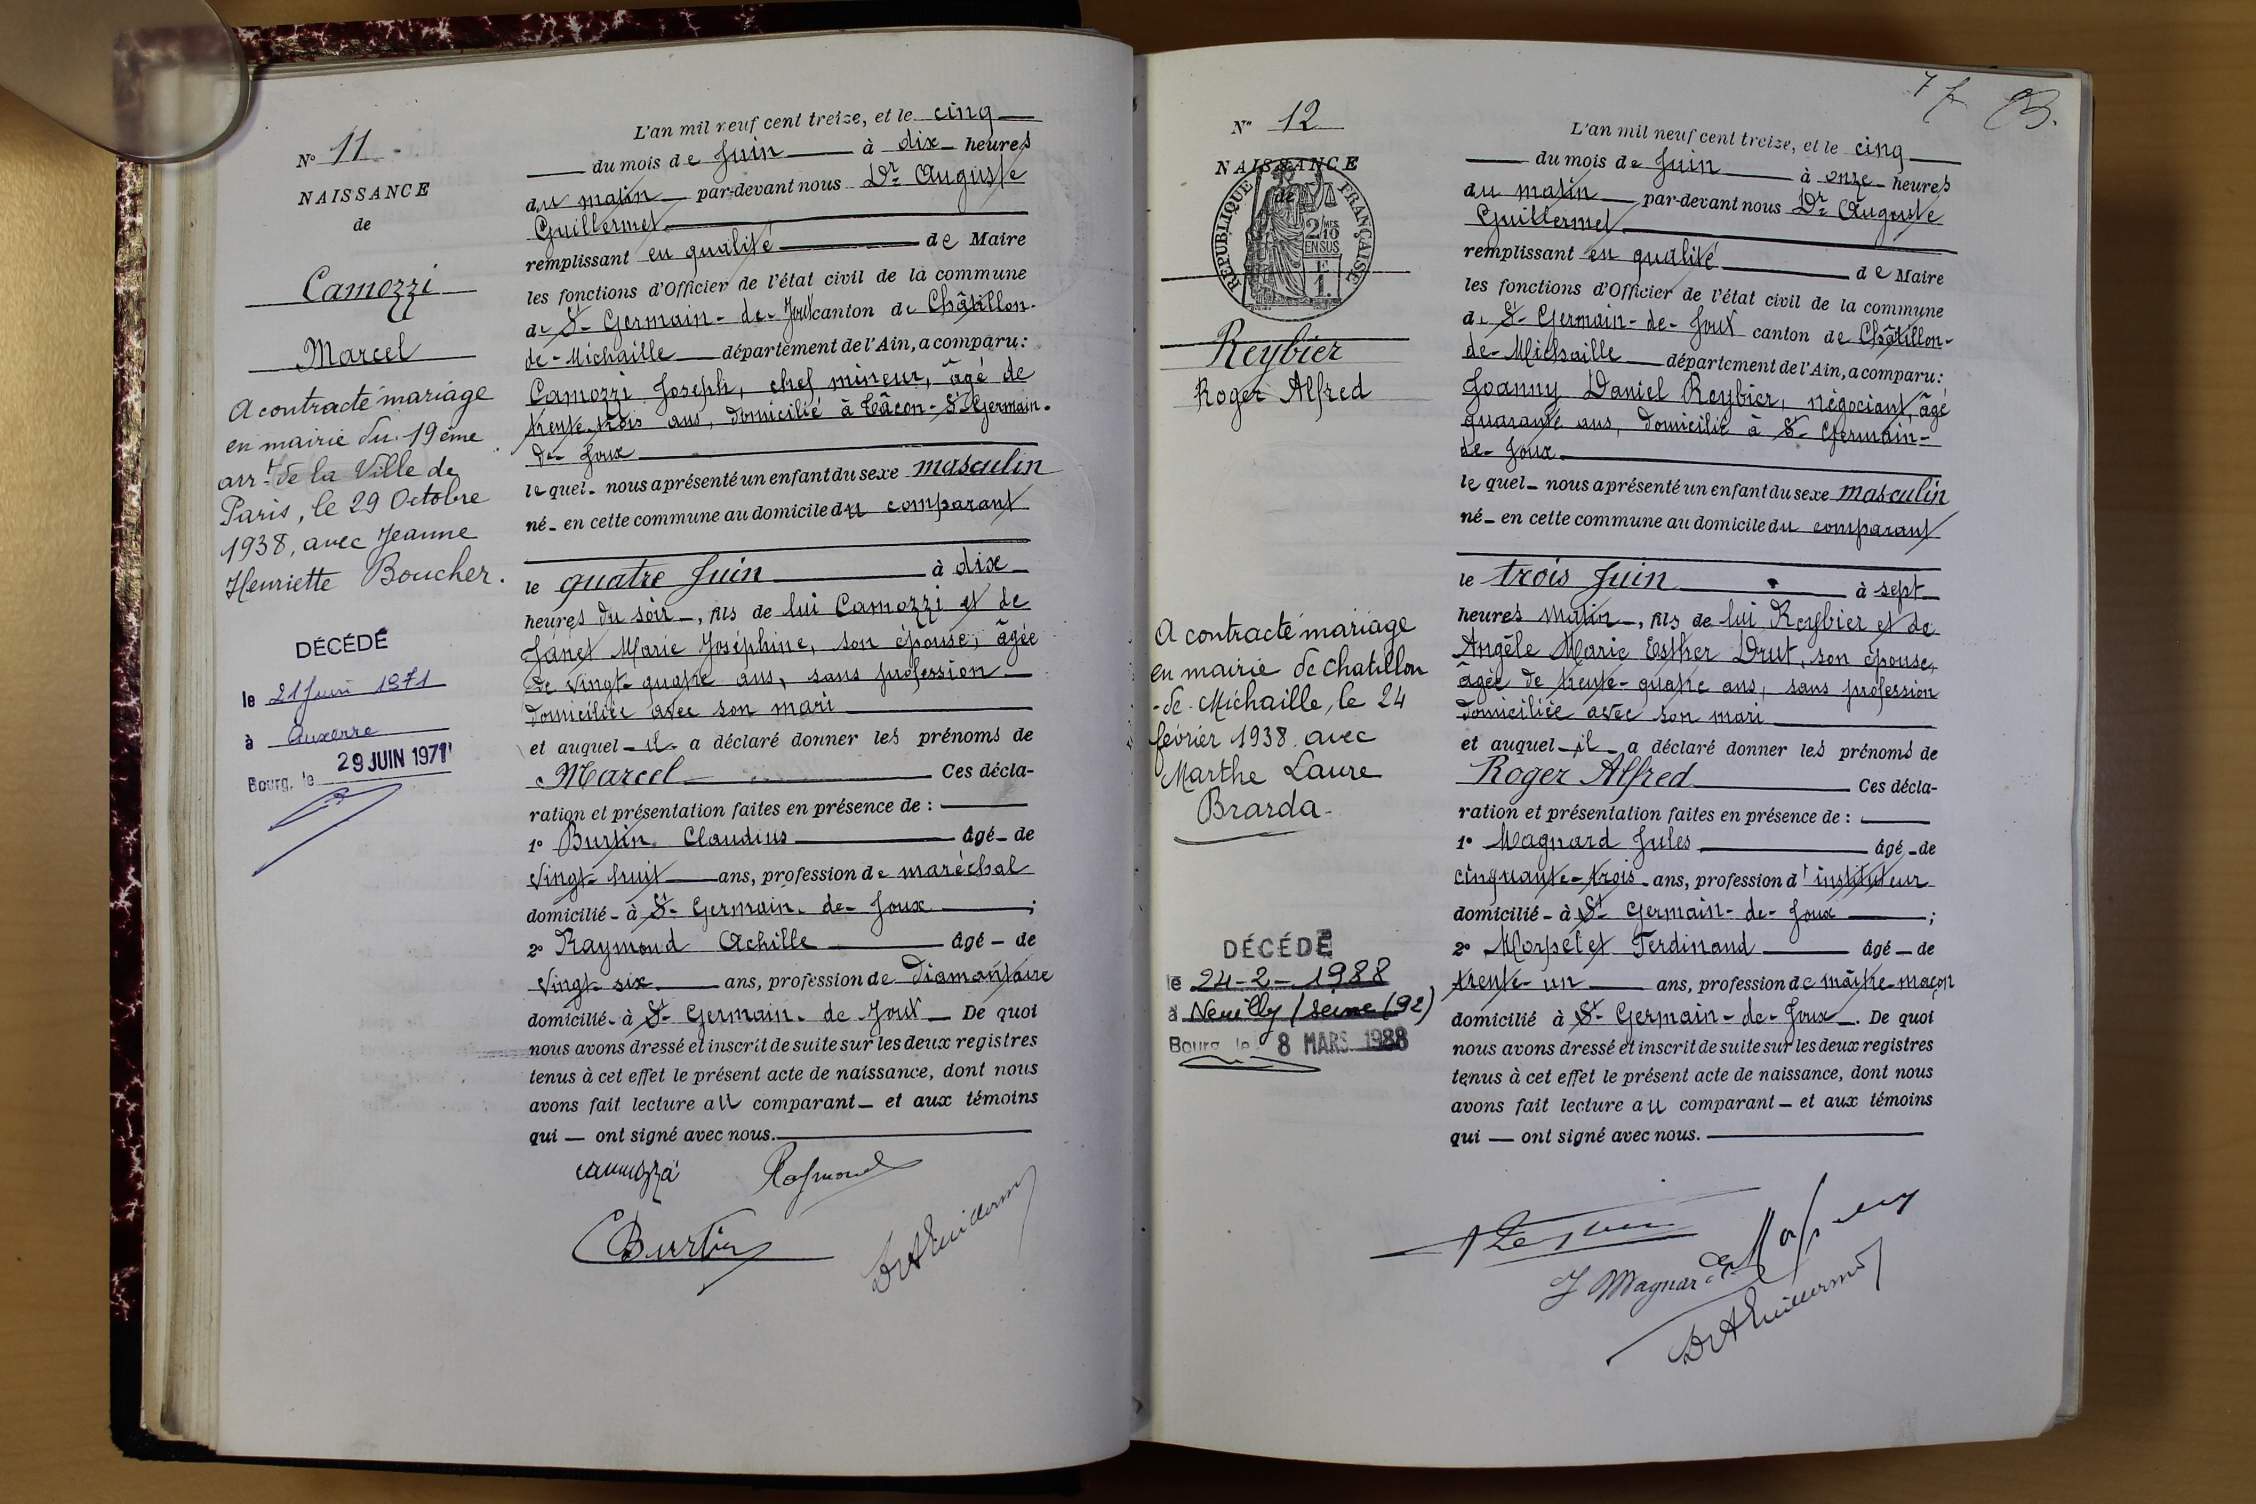 N° 11
NAISSANCE
de
Camozzi
Marcel
A contracté mariage
en mairie du 19ème
arrt de la Ville de
Paris, le 29 Octobre
1938, avec Jeanne
Henriette Boucher.
DÉCÉDÉ
le 21 Juin 1971
à Auxerre
Bourg, le 29 JUIN 1971
L'an mil neuf cent treize, et le cinq
du mois de Juin à dix heures
du matin par-devant nous Dr Auguste
Guillermet
remplissant en qualité de Maire
les fonctions d'Officier de l'état civil de la commune
de St Germain-de-Joux canton de Châtillon-
de-Michaille département de l'Ain, a comparu:
Camozzi Joseph, chef mineur, âgé de
trente-trois ans, domicilié à Tâcon-St Germain-
de-Joux
lequel nous a présenté un enfant du sexe masculin
né en cette commune au domicile du comparant
le quatre Juin à dix
heures du soir, fils de lui Camozzi et de
Janet Marie Joséphine, son épouse, âgée
de vingt-quatre ans, sans profession
domiciliée avec son mari
et auquel il a déclaré donner les prénoms de
Marcel Ces décla-
ration et présentation faites en présence de :
1° Burtin Claudius âgé de
vingt-huit ans, profession de maréchal
domicilié à St Germain-de-Joux ;
2° Raymond Achille âgé de
vingt-six ans, profession de diamantaire
domicilié à St Germain-de-Joux De quoi
nous avons dressé et inscrit de suite sur les deux registres
tenus à cet effet le présent acte de naissance, dont nous
avons fait lecture au comparant et aux témoins
qui ont signé avec nous.
Camozzi Raymond
C Burtin Dr A Guillermet
N° 12
NAISSANCE
de
RÉPUBLIQUE FRANÇAISE
2/10MES
EN SUS
F
1.
Reybier
Roger Alfred
A contracté mariage
en mairie de Chatillon
-de-Michaille, le 24
février 1938 avec
Marthe Laure
Brarda
DÉCÉDÉ
le 24-2-1988
à Neuilly/Seine (92)
Bourg, le 8 MARS 1988
L'an mil neuf cent treize, et le cinq
du mois de Juin à onze heures
du matin par-devant nous Dr Auguste
Guillermet
remplissant en qualité de Maire
les fonctions d'Officier de l'état civil de la commune
de St Germain-de-Joux canton de Châtillon-
de-Michaille département de l'Ain, a comparu:
Joanny Daniel Reybier, négociant, âgé
quarante ans, domicilié à St Germain-
de-Joux
lequel nous a présenté un enfant du sexe masculin
né en cette commune au domicile du comparant
le trois Juin à sept
heures matin, fils de lui Reybier et de
Angèle Marie Esther Drut, son épouse,
âgée de trente-quatre ans, sans profession
domiciliée avec son mari
et auquel il a déclaré donner les prénoms de
Roger Alfred Ces décla-
ration et présentation faites en présence de :
1° Magnard Jules âgé de
cinquante-trois ans, profession d'instituteur
domicilié à St Germain-de-Joux ;
2° Morpelet Ferdinand âgé de
trente-un ans, profession de maître-maçon
domicilié à St Germain-de-Joux. De quoi
nous avons dressé et inscrit de suite sur les deux registres
tenus à cet effet le présent acte de naissance, dont nous
avons fait lecture au comparant et aux témoins
qui ont signé avec nous.
J Magnard
Dr A Guillermet